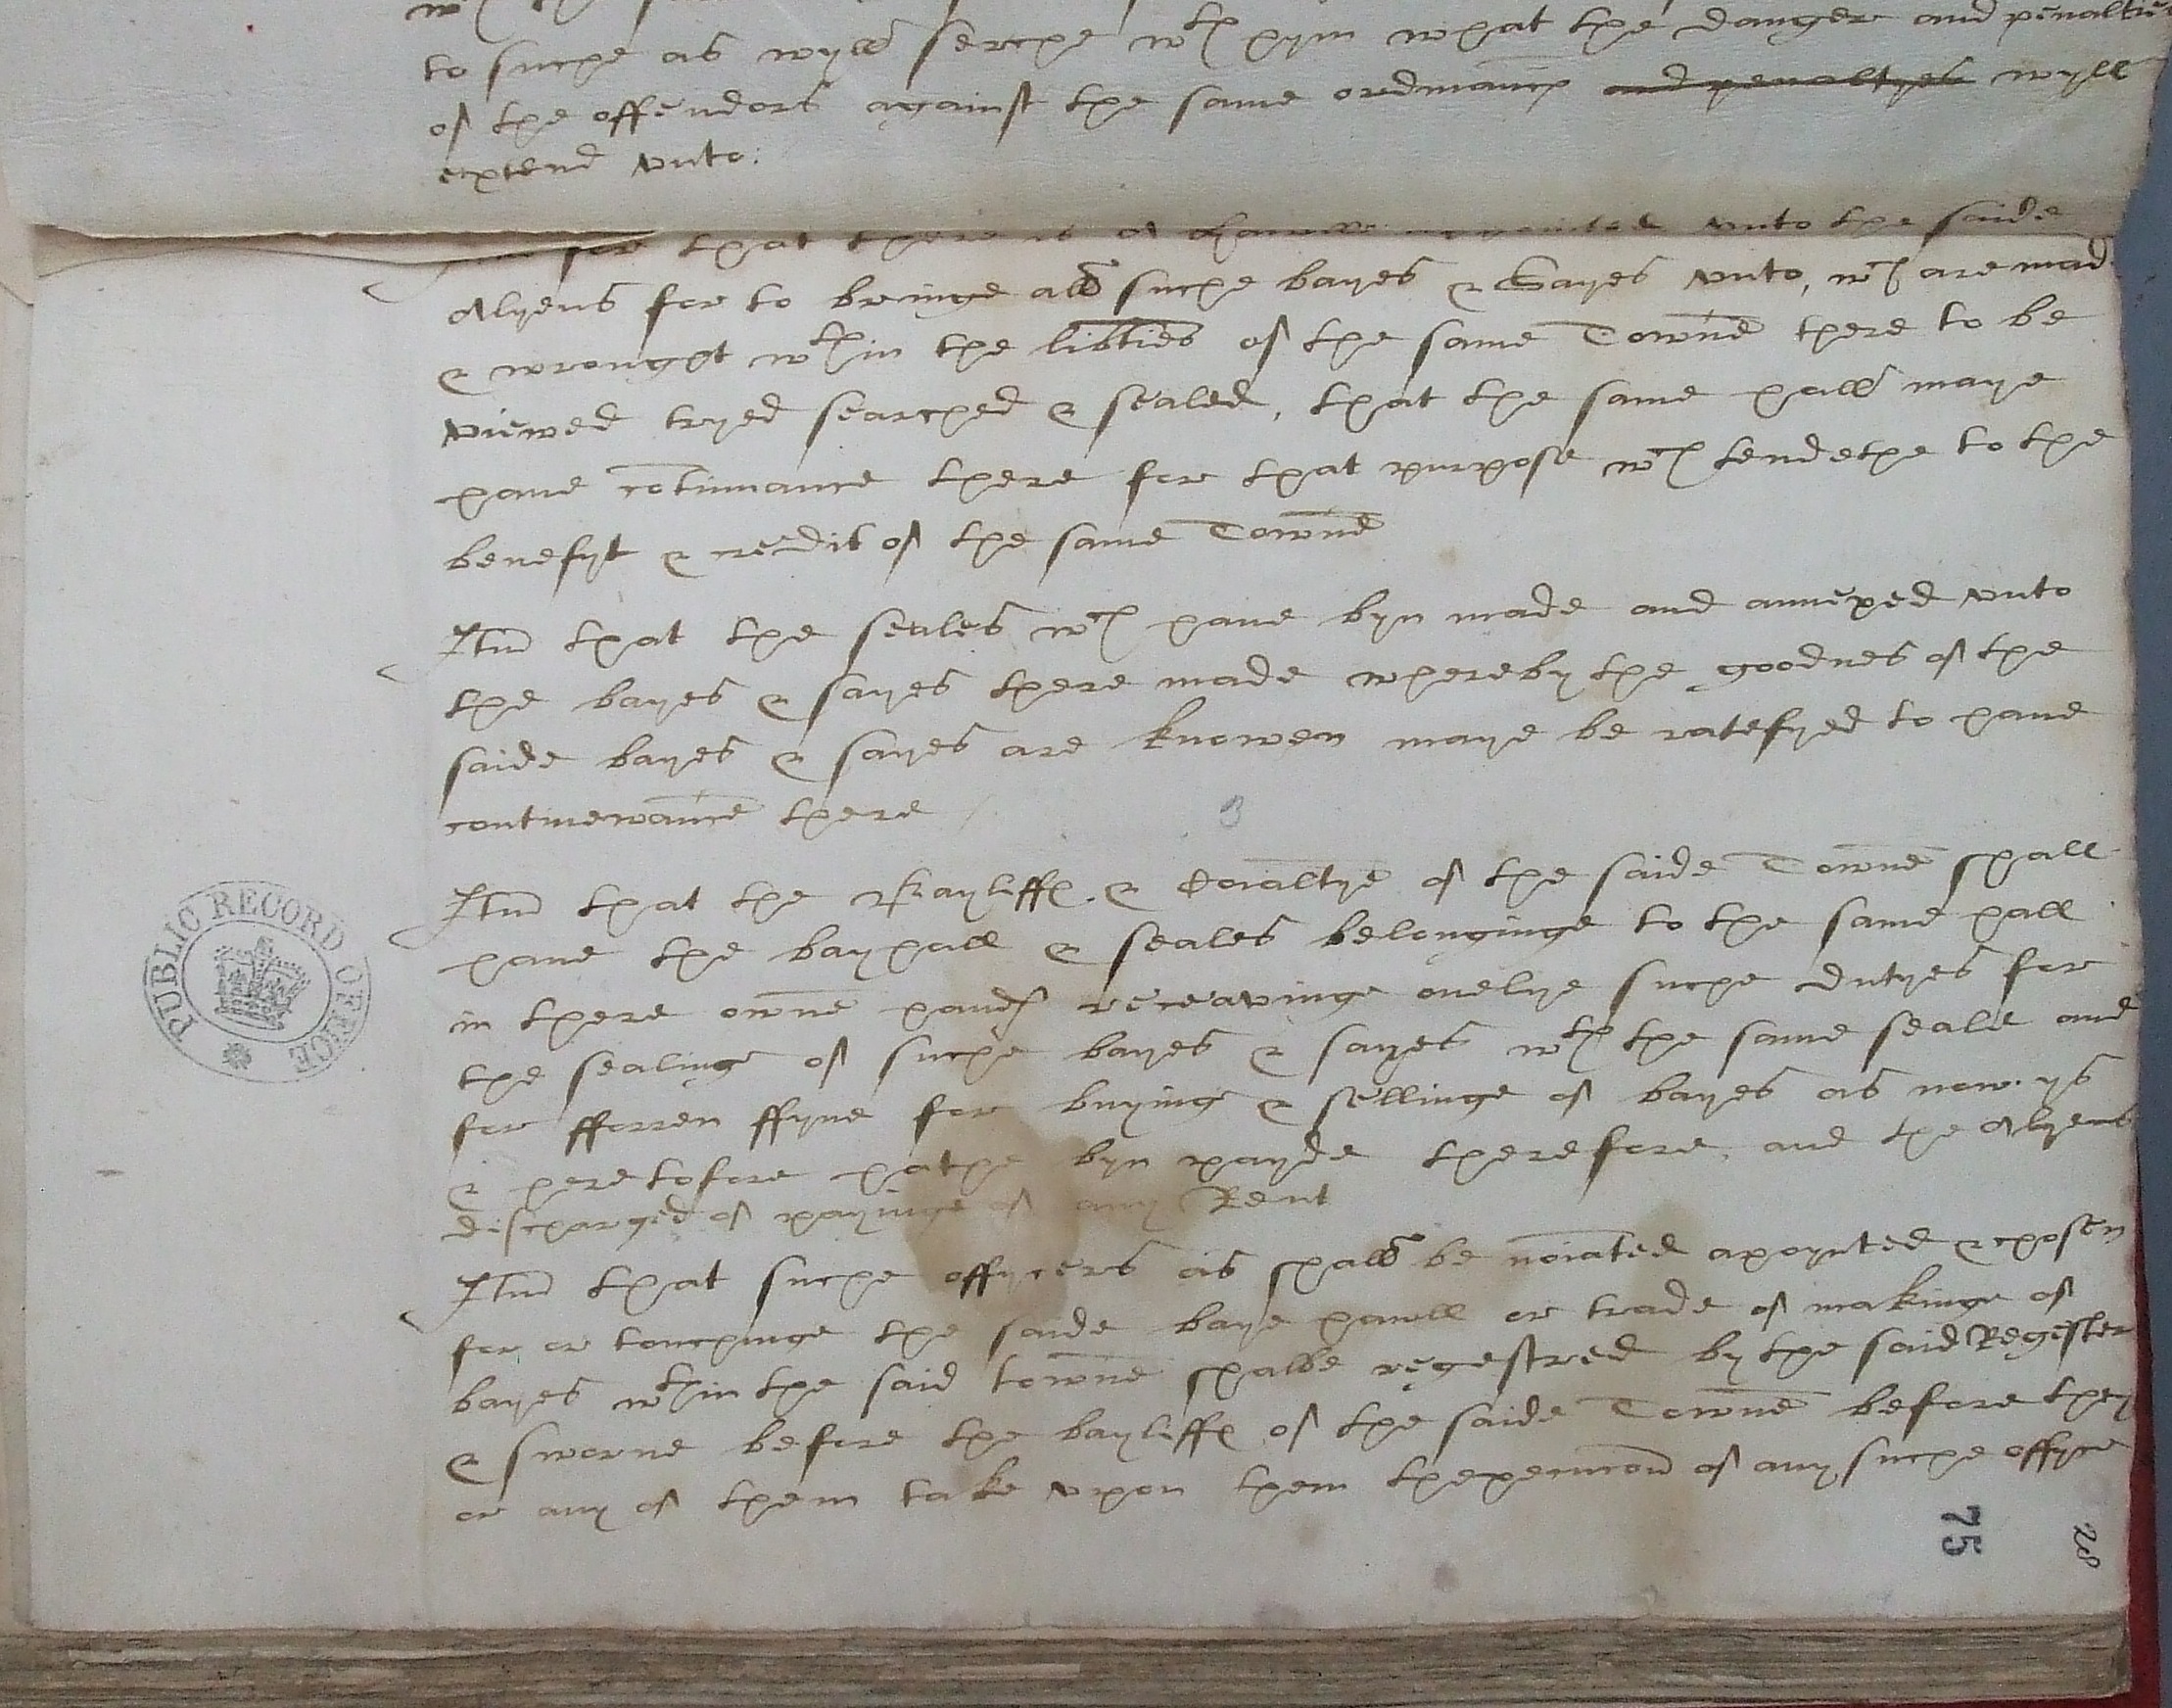 to suche as wyll serche wth hym what the danger and penaltie
of the offendors against the same ordinaunc and penaltyes wyll
extend vnto:
for that there is a hawll appointed vnto the saide
Alyens for to bringe all suche bayes & Sayes vnto, wch are mad
& wrought wthin the libties of the same Towne there to be
viewed tryed searched & sealed, that the same hall maye
haue cotinuance there for that purpose wch tendethe to the
benefyt & credit of the same Towne
Itm that the seales wch haue byn made and annexed vnto
the bayes & sayes there made whereby the goodnes of the
saide bayes & sayes are knowen maye be ratefyed to haue
continewance there
3
Itm that the Bayliffs & Coialtye of the saide Towne shall
haue the bayhall & seales belonginge to the same hall
in there owne hands receavinge onelye suche dutyes for
the sealinge of suche bayes & sayes wth the same seale and
for fforren ffyne for buyinge & sellinge of bayes as now ys
& heretofore hathe byn payde therefore, and the Alyens
discharged of payinge of any Rent
Itm that suche offycers as shall be noiated apoynted & chosen
for or touchinge the saide baye hawll or trade of makinge of
bayes wthin the said towne shalbe regestred by the said Regester
& sworne before the bayliffs of the saide Towne before they
or any of them take vpon them thexecucon of any suche offyce
75
28
PUBLIC RECORD OFFICE